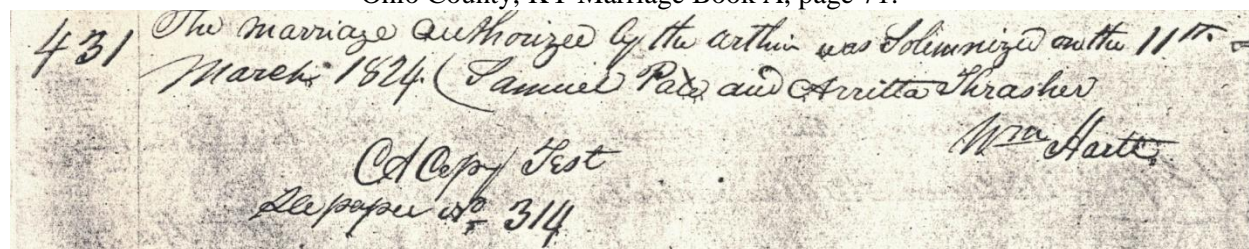 Ohio County, KY Marriage Book A, page 71.
431 The marriage authorized by the within was Solemnized on the 11th
March 1824 (Samuel Pate and Arritta Thrasher
Wm Harte
A Copy Test
See paper No 314